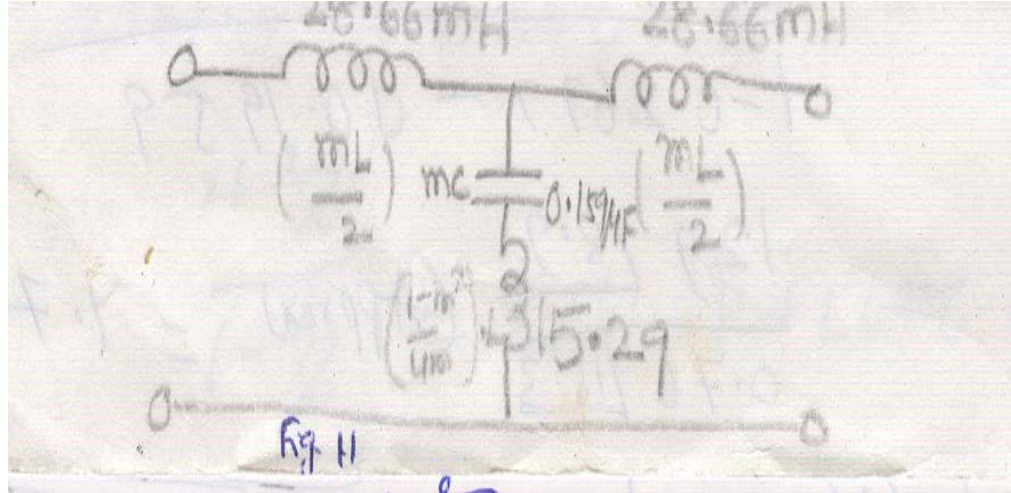 28.66mH 28.66mH
(mL/2) mc 0.159μF (mL/2)
(1-m²/4m) L 315.29
Fig. 11